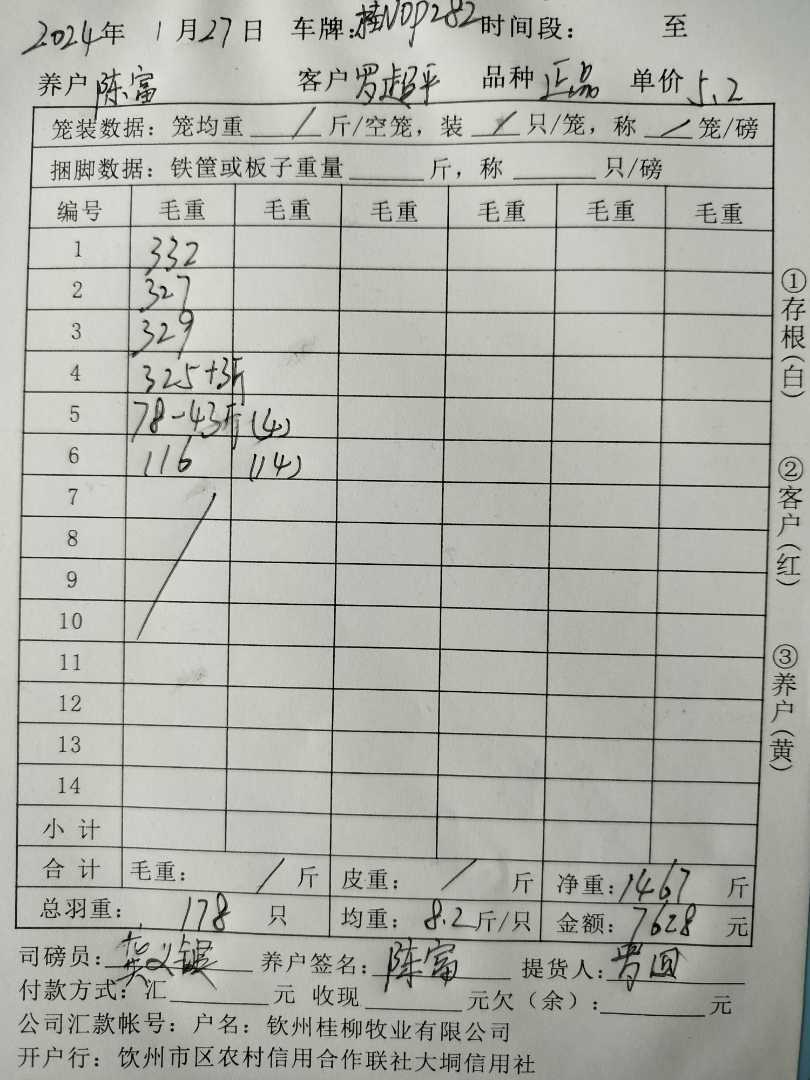 2024年 1月27日 车牌:桂NDP282 时间段: 至
养户 陈富 客户 罗超平 品种 正品 单价 5.2
笼装数据: 笼均重 / 斤/空笼, 装 / 只/笼, 称 / 笼/磅
捆脚数据: 铁筐或板子重量 斤, 称 只/磅
编号 毛重 毛重 毛重 毛重 毛重 毛重
1 332
2 327
3 329
4 325+3斤
5 78-43斤 (4)
6 116 (14)
7
8
9
10
11
12
13
14
小计
合计 毛重: / 斤 皮重: / 斤 净重:1467 斤
总羽重: 178 只 均重: 8.2斤/只 金额: 7628 元
司磅员: 养户签名: 陈富 提货人:
付款方式: 汇 元 收现 元欠(余): 元
公司汇款帐号: 户名: 钦州桂柳牧业有限公司
开户行: 饮州市区农村信用合作联社大垌信用社
①存根(白)
②客户(红)
③养户(黄)